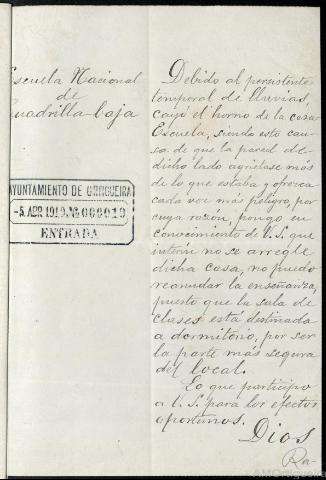 Escuela Nacional
de
Cuadrilla-baja
AYUNTAMIENTO DE ORTIGUEIRA
-5. ABR. 1919. Nº 000019
ENTRADA
Debido al persistente
temporal de lluvias,
cayó el horno de la casa
Escuela, siendo esto cau-
sa de que la pared de
dicho lado agrietase más
de lo que estaba y ofrezca
cada vez más peligro, por
cuya razón, pongo en
conocimiento de V.S. que
interin no se arregle
dicha casa, no puedo
reanudar la enseñanza,
puesto que la sala de
clases está destinada
a dormitorio, por ser
la parte más segura
del local.
Lo que participo
a V.S. para los efectos
oportunos.
Dios
AMOrtigueira